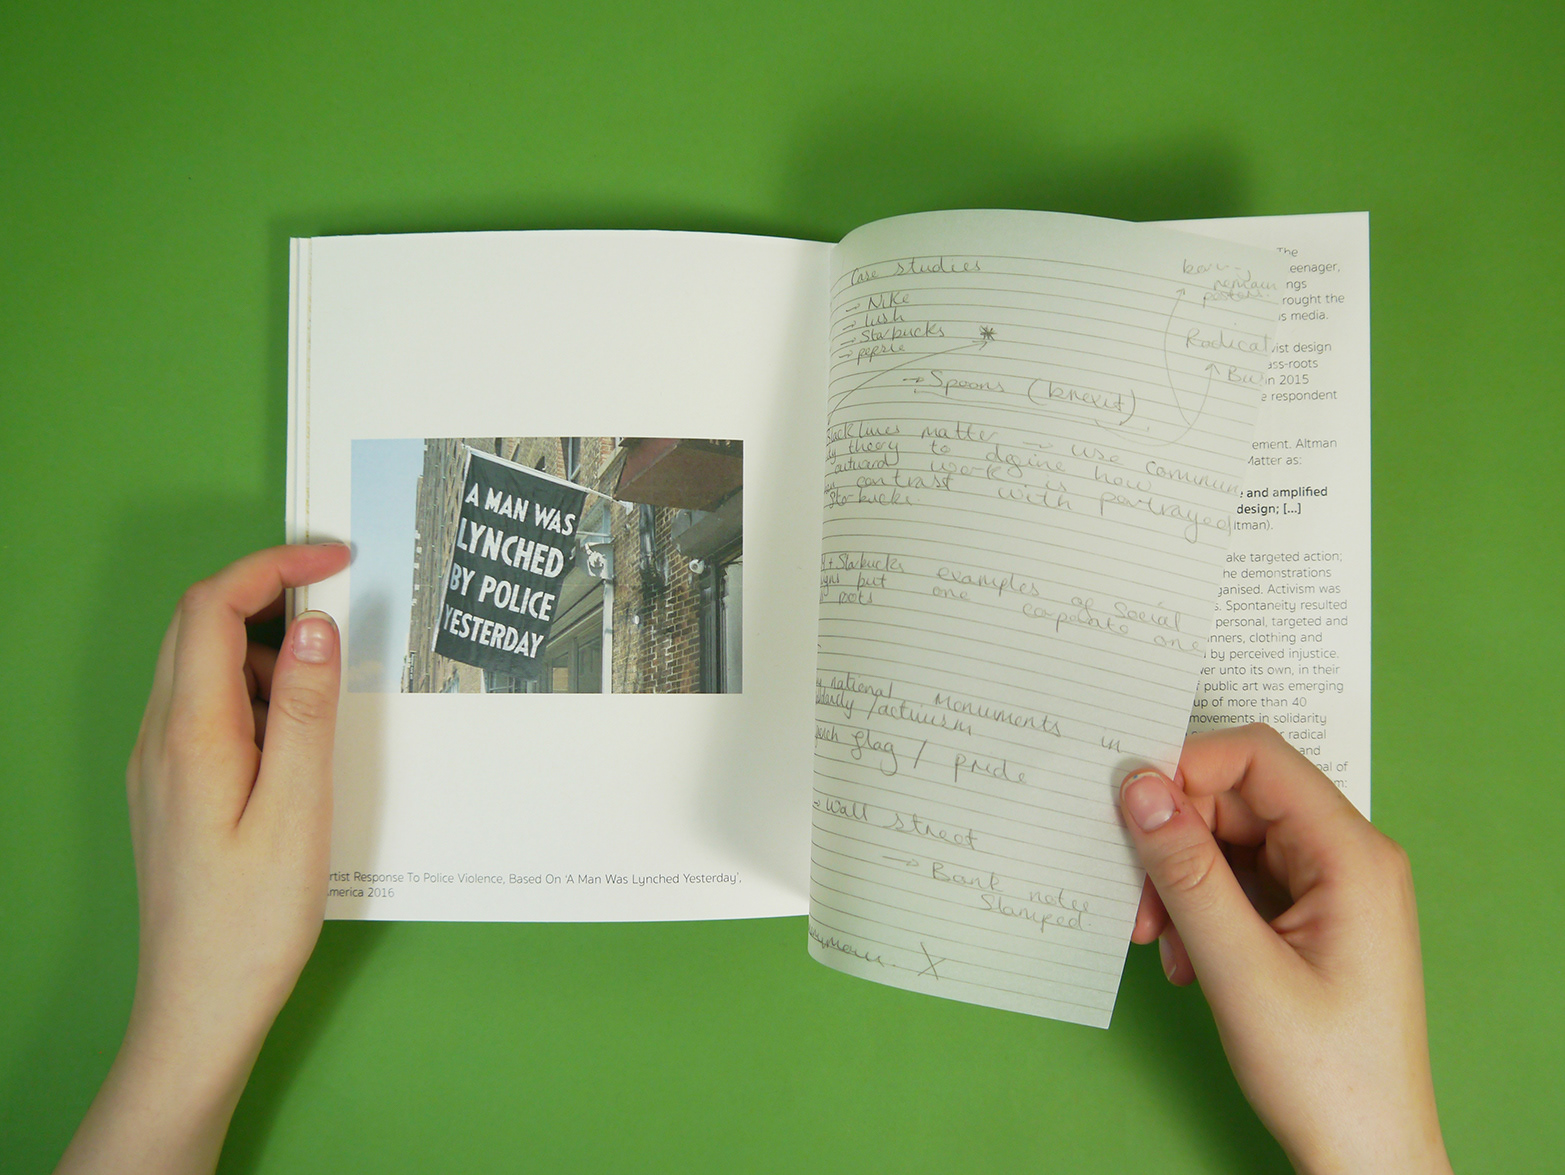 A MAN WAS
LYNCHED
BY POLICE
YESTERDAY
rtist Response To Police Violence, Based On ‘A Man Was Lynched Yesterday’,
merica 2016
Case studies
→ Nike
→ Lush
→ Starbucks *
→ pepsie
→ Spoons (brexit)
Radical
posters
matter → use commun
theory to define how
outward work is portrayed
contrast with
Starbucks.
+ Starbucks examples of social
but one corporate one
national monuments in
/activism
flag / pride
→ Wall street
→ Bank notes
Stamped.
X
The
eenager,
ngs
rought the
s media.
ist design
ass-roots
in 2015
e respondent
ement. Altman
Matter as:
e and amplified
design; [...]
ltman).
ake targeted action;
he demonstrations
ganised. Activism was
s. Spontaneity resulted
personal, targeted and
nners, clothing and
by perceived injustice.
ver unto its own, in their
f public art was emerging
up of more than 40
movements in solidarity
r radical
and
oal of
m: